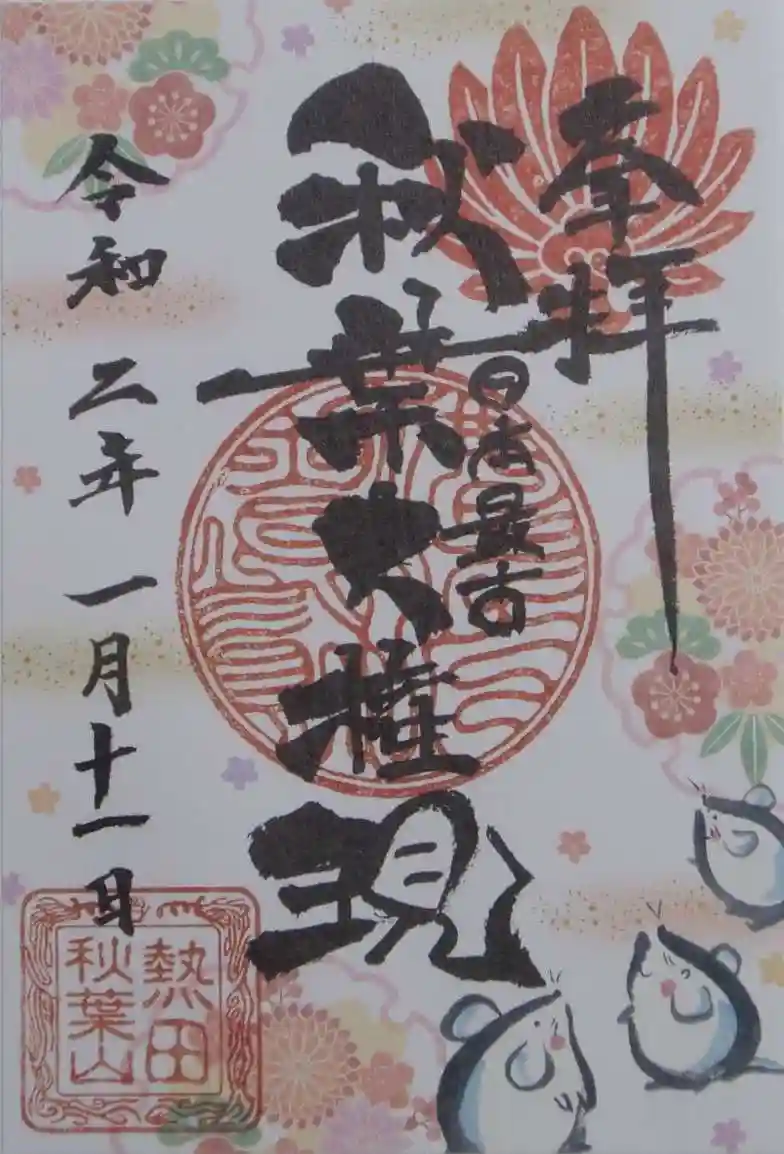 奉拝
日本最古
秋葉大権現
令和二年一月十一日
熱田
秋葉山